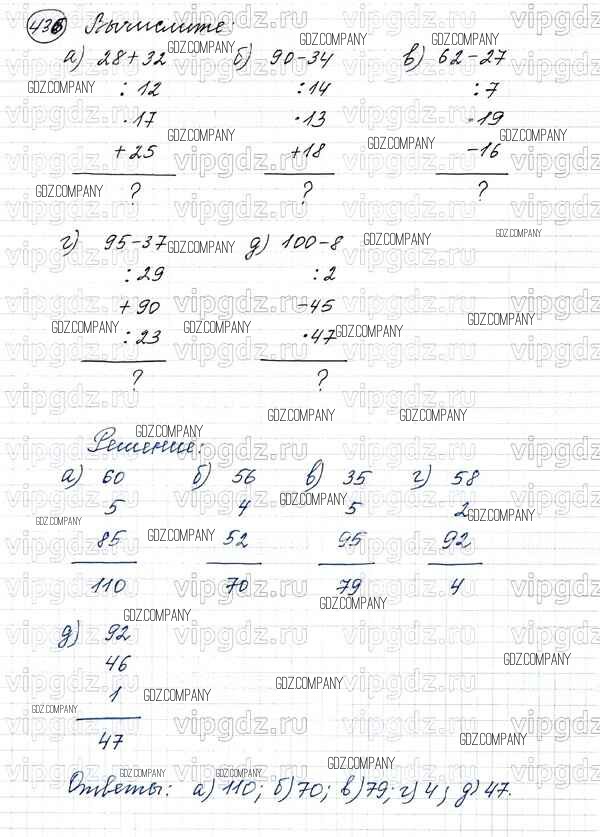 436 Вычислите:
а) 28+32 б) 90-34 в) 62-27
:12 :14 :7
·17 ·13 ·19
+25 +18 -16
? ? ?
г) 95-37 д) 100-8
:29 :2
+90 -45
:23 ·47
? ?
Решение:
а) 60 б) 56 в) 35 г) 58
5 4 5 2
85 52 95 92
110 70 79 4
д) 92
46
1
47
Ответы: а) 110; б) 70; в) 79; г) 4; д) 47.